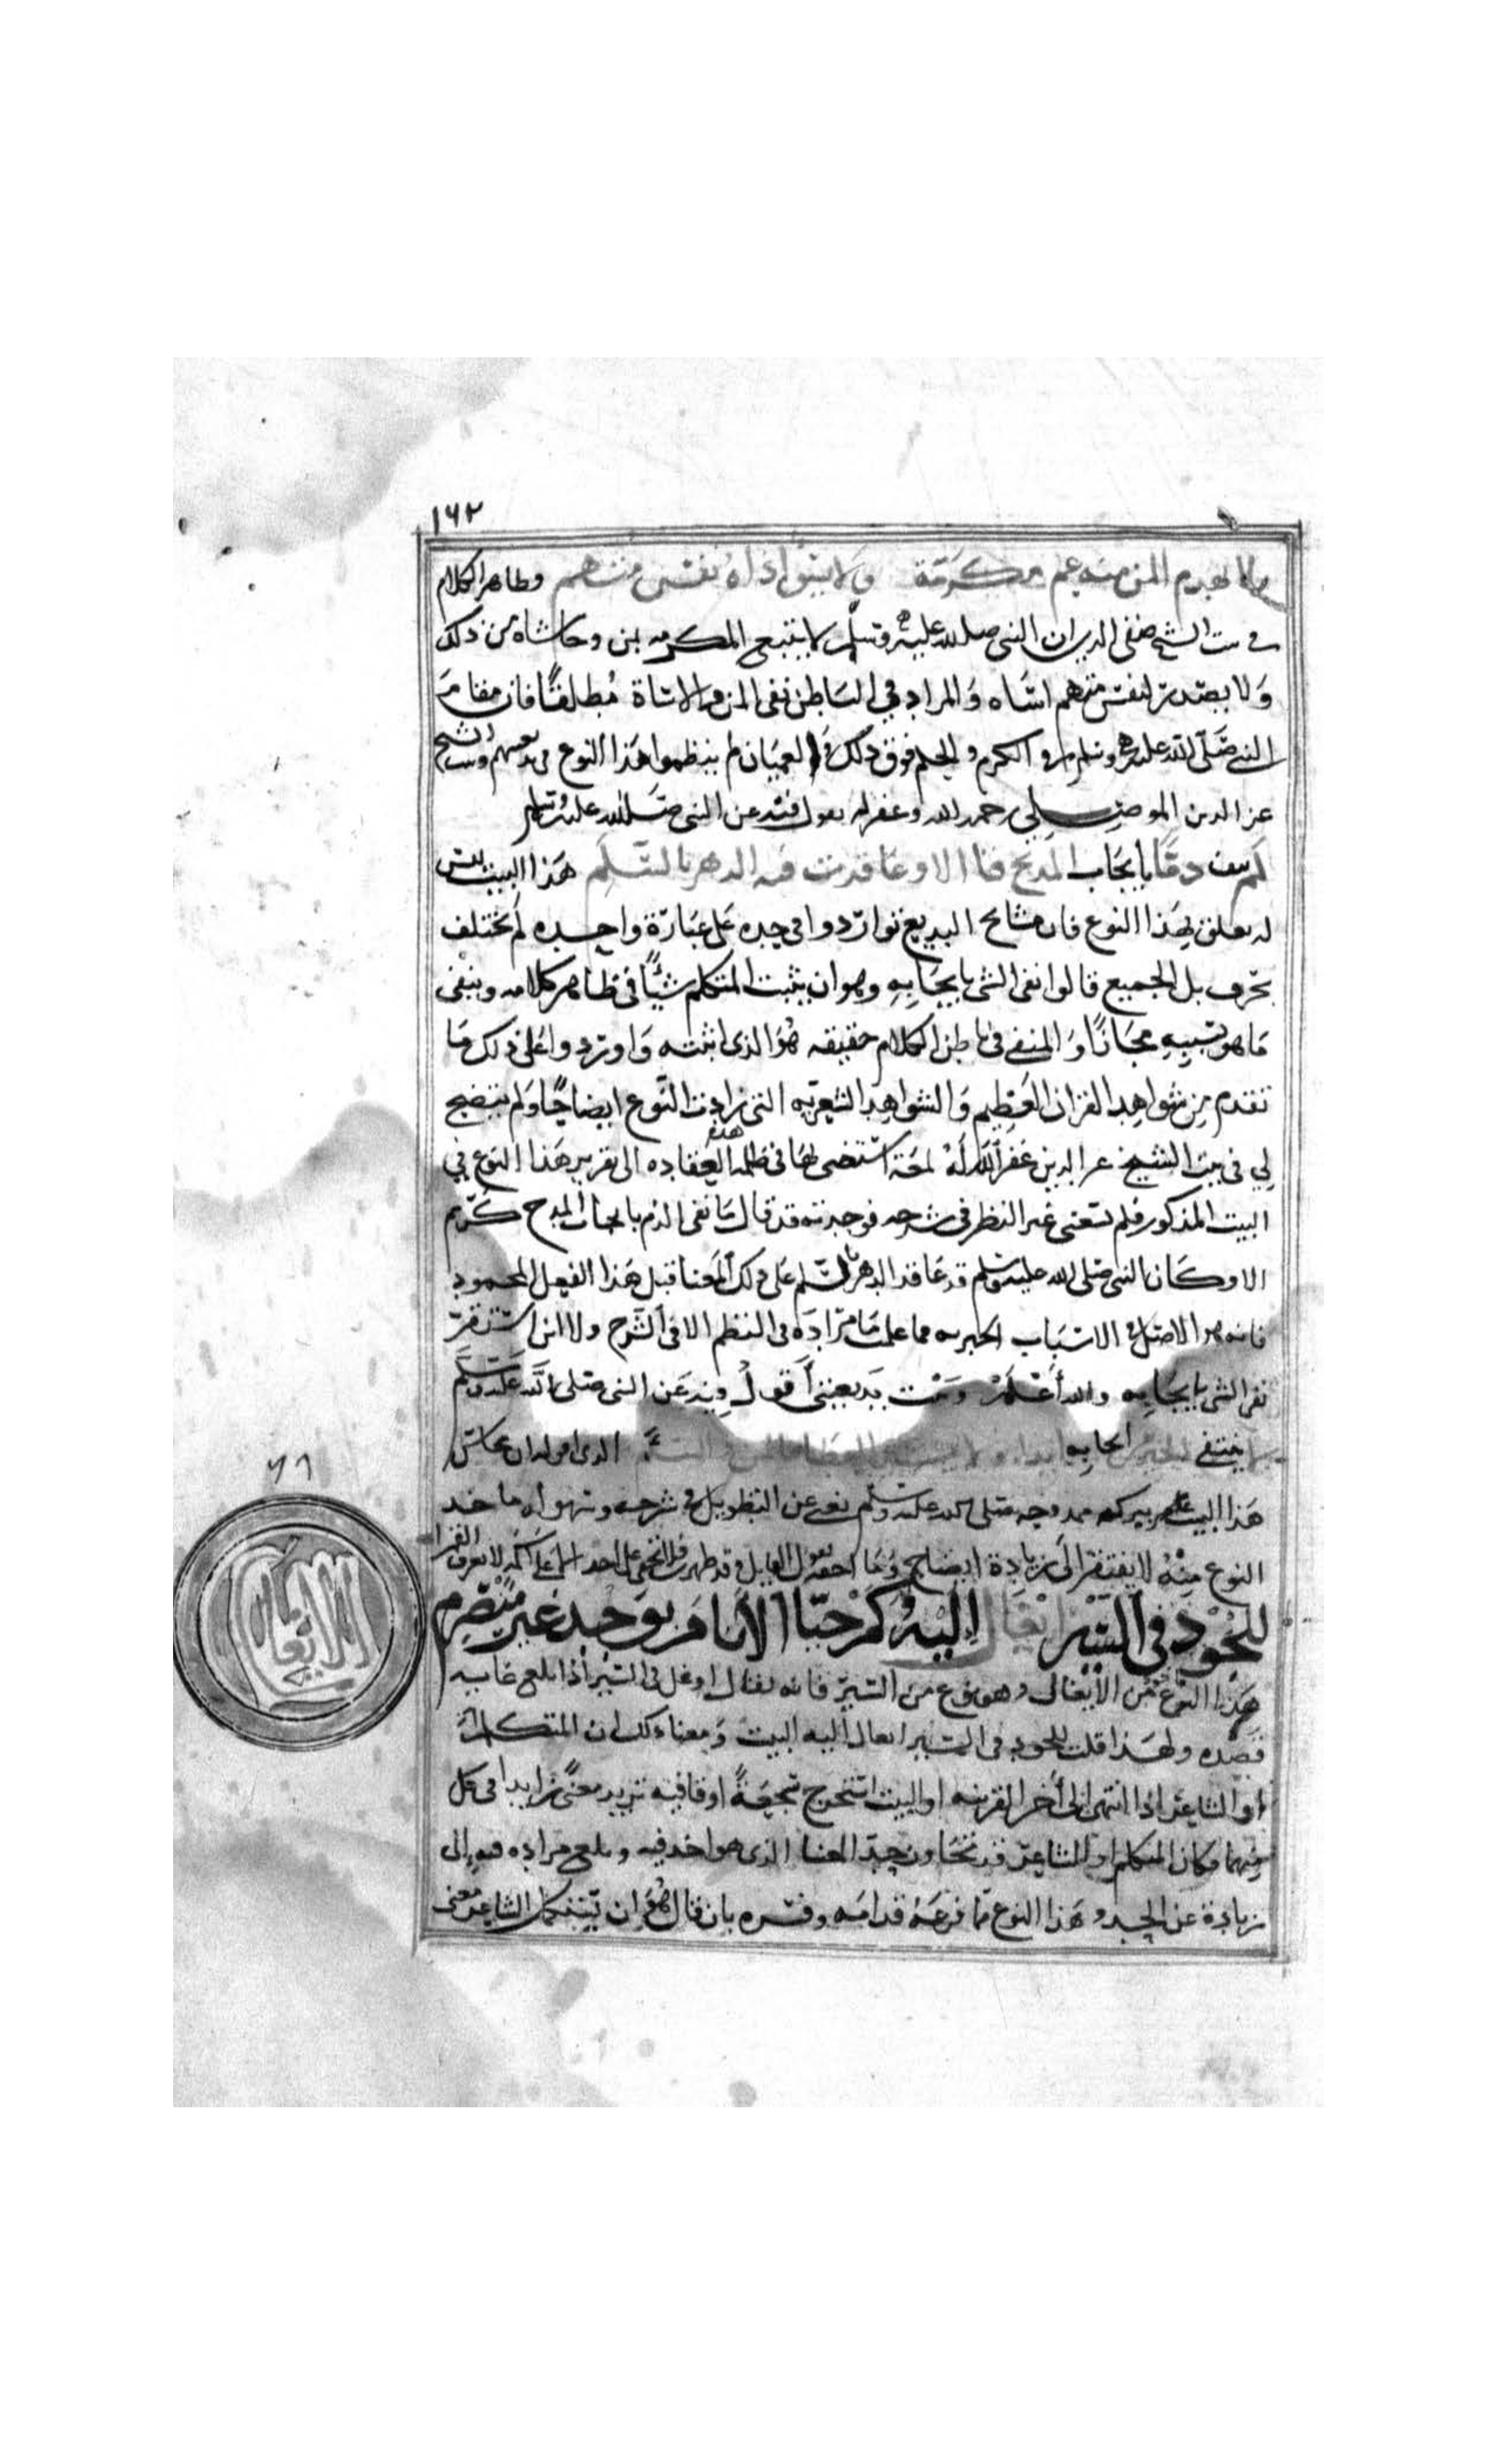 ١٦٢
لا يهدم المن منه عمر مكرمة ولا يسوء اذاه نفس متهم وظاهر الكلام
في بيت الشيخ صفي الدين ان النبي صلى الله عليه وسلم لا يتبع المكرمه بمن وحاشاه من ذلك
ولا يصدر لنفس متهم اساه والمراد في الباطن نفي المن والاساة مطلقا فان مقام
النبي صلى الله عليه وسلم في الكرم والحلم فوق ذلك والعميان لم ينظموا هذا النوع في بديعيتهم وبيت الشيخ
عز الدين الموصلي رحمه الله وغفر له يقول فيه عن النبي صلى الله عليه وسلم
لم ينف ذما بايجاب المديح فتى الا وعاقدت فيه الدهر بالسلم هذا البيت ليس
له تعلق بهذا النوع فان مشايخ البديع تواردوا في حده على عبارة واحده لم تختلف
بحرف بل الجميع قالوا نفي الشي بايجابه وهو ان يثبت المتكلم شيئا في ظاهر كلامه وينفي
ما هو سببه مجازا والمنفي في باطن الكلام حقيقه هو الذي اثبته واوردوا على ذلك ما
تقدم من شواهد القران العظيم والشواهد الشعريه التي زادت النوع ايضاحا ولم يتضح
لي في بيت الشيخ عز الدين غفر الله له لمحة استضي بها في ظلمة هذه العقاده الى تقرير هذا النوع في
البيت المذكور فلم يسعني غير النظر في شرحه فوجدته قد قال ما نفي الذم بايجاب المدح كريم
الا وكان النبي صلى الله عليه وسلم قد عاقد الدهر بالسلم على ذلك المعنا قبل هذا الفعل المحمود
فانه هو الاصل في الاسباب الخيريه فما علمت ما مراده في النظم الا في الشرح ولا اين استقر
نفي الشي بايجابه والله أعلم وبيت بديعيتي أقول فيه عن النبي صلى الله عليه وسلم
لا ينتفي الخير من ايجابه ابدا ولا يشين العطا بالمن والسئم الذي اقوله ان محاسن
هذا البيت ببركه ممدوحه صلى الله عليه وسلم تغني عن التطويل في شرحه وسهوله ماخذ
النوع منه لا يفتقر الى زيادة ايضاح وما احقه بقول القايل وقد ظهرت فلا تخفى على احد الا على اكمه لا يعرف القمرا
٦٦
الايغال
للجود في السير ايغال اليه وكم حبا الأنام بوجد غير منصرم
هذا النوع من الايغال وهو نوع من السير فانه يقال اوغل في السير اذا بلغ غاية
قصده ولهذا قلت للجود في السير ايغال اليه البيت ومعنا ذلك ان المتكلم
او الشاعر اذا انتهى الى آخر القرينه او البيت استخرج سجعة او قافيه تزيد معنى زايدا في كل
منهما فكان المتكلم او الشاعر قد تجاوز حد المعنا الذي هو اخذ فيه وبلغ مراده فيه الى
زيادة عن الحد وهذا النوع مما فرعه قدامه وفسره بان قال هو ان يستكمل الشاعر معنى